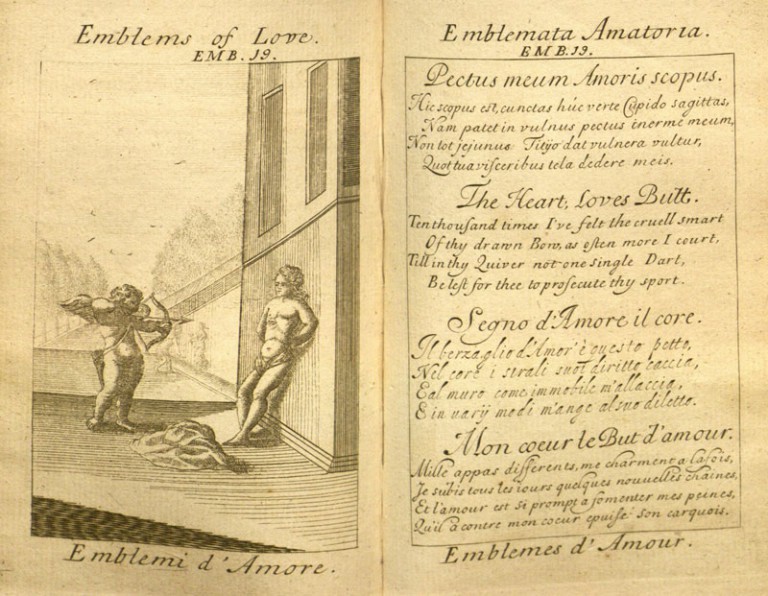 Emblems of Love.
EMB. 19.
Emblemi d'Amore.
Emblemata Amatoria.
EMB. 19.
Pectus meum Amoris scopus.
Hic scopus est, cunctas húc verte Cupido sagittas,
Nam patet in vulnus pectus inerme meum,
Non tot jejunus Tityo dat vulnera vultur,
Quot tua visceribus tela dedere meis.
The Heart, Loves Butt.
Ten thousand times I've felt the cruell smart
Of thy drawn Bow, as often more I court,
Till in thy Quiver not one single Dart,
Be left for thee to prosecute thy sport.
Segno d'Amore il core.
Il berzaglio d'Amor' è questo petto,
Nel core i strali suoi diritto caccia,
E al muro come immobile m'allaccia,
E in varij modi m'ange al suo diletto.
Mon coeur le But d'amour.
Mille appas differents, me charment a la fois,
Je subis tous les iours quelques nouvelles chaines,
Et l'amour est si prompt a fomenter mes peines,
Qu'il a contre mon coeur epuisé son carquois.
Emblemes d'Amour.